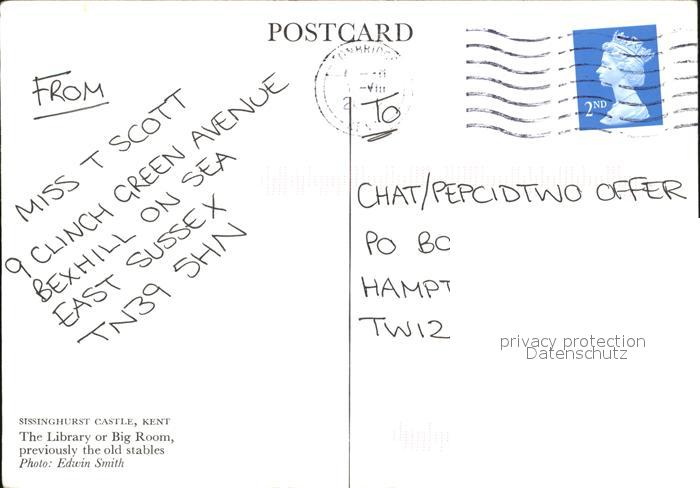 POSTCARD
FROM
MISS T SCOTT
9 CLINCH GREEN AVENUE
BEXHILL ON SEA
EAST SUSSEX
TN39 5HN
TO
CHAT/PEPCIDTWO OFFER
PO BO
HAMPT
TW12
2ND
VIII
privacy protection
Datenschutz
SISSINGHURST CASTLE, KENT
The Library or Big Room,
previously the old stables
Photo: Edwin Smith